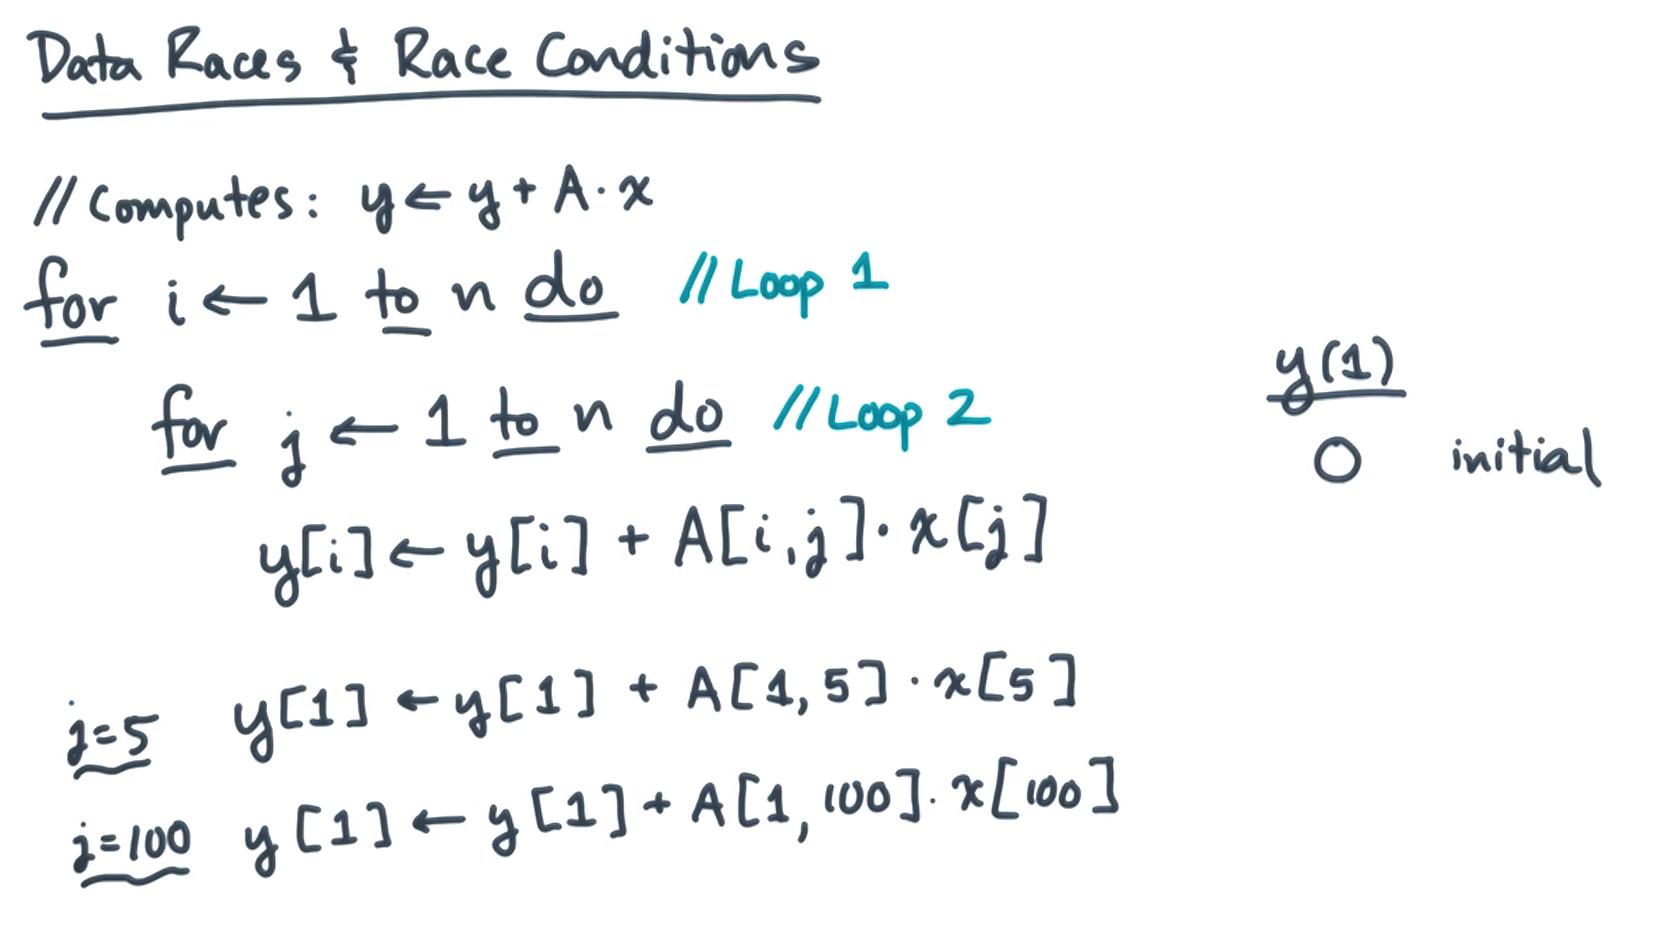 Data Races & Race Conditions
// Computes: y ← y + A · x
for i ← 1 to n do // Loop 1
for j ← 1 to n do // Loop 2
y[i] ← y[i] + A[i,j] · x[j]
j=5 y[1] ← y[1] + A[1,5] · x[5]
j=100 y[1] ← y[1] + A[1,100] · x[100]
y(1)
0 initial